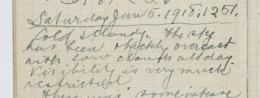 Saturday Jun 5. 1918, 1251.
Cold & cloudy. The sky
has been slightly overcast
with low clouds all day.
Visibility is very much
restricted.
There was some intense